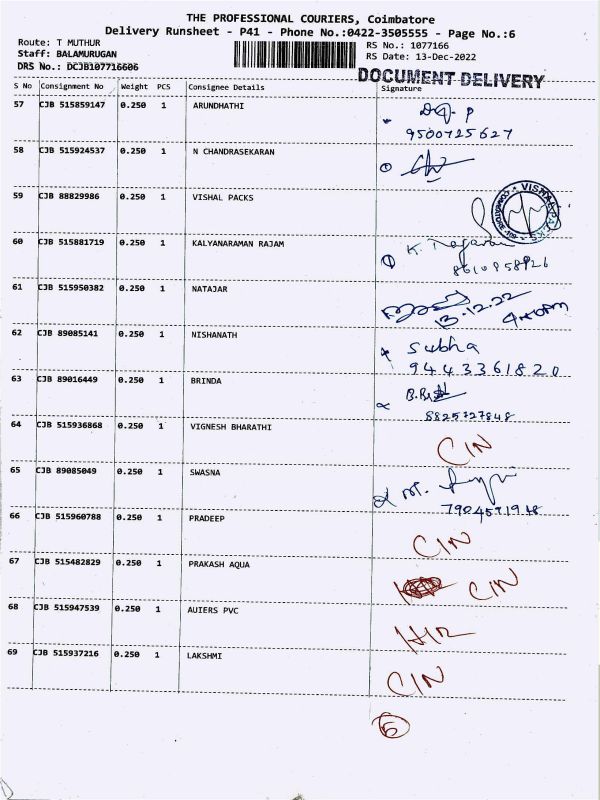 THE PROFESSIONAL COURIERS, Coimbatore
Delivery Runsheet - P41 - Phone No.:0422-3505555 - Page No.:6
Route: T MUTHUR
RS No.: 1077166
Staff: BALAMURUGAN
RS Date: 13-Dec-2022
DRS No.: DCJB107716606
DOCUMENT DELIVERY
S No Consignment No Weight PCS Consignee Details Signature
57 CJB 515859147 0.250 1 ARUNDHATHI
9500725627
58 CJB 515924537 0.250 1 N CHANDRASEKARAN
59 CJB 88829986 0.250 1 VISHAL PACKS
VISHAL PACKS
60 CJB 515881719 0.250 1 KALYANARAMAN RAJAM
8610958926
61 CJB 515950382 0.250 1 NATAJAR
13.12.22
62 CJB 89085141 0.250 1 NISHANATH Subha
9443361820
63 CJB 89016449 0.250 1 BRINDA
8825727848
64 CJB 515936868 0.250 1 VIGNESH BHARATHI CIN
65 CJB 89085049 0.250 1 SWASNA
7904571948
66 CJB 515960788 0.250 1 PRADEEP CIN
67 CJB 515482829 0.250 1 PRAKASH AQUA CIN
68 CJB 515947539 0.250 1 AUIERS PVC
69 CJB 515937216 0.250 1 LAKSHMI CIN
6